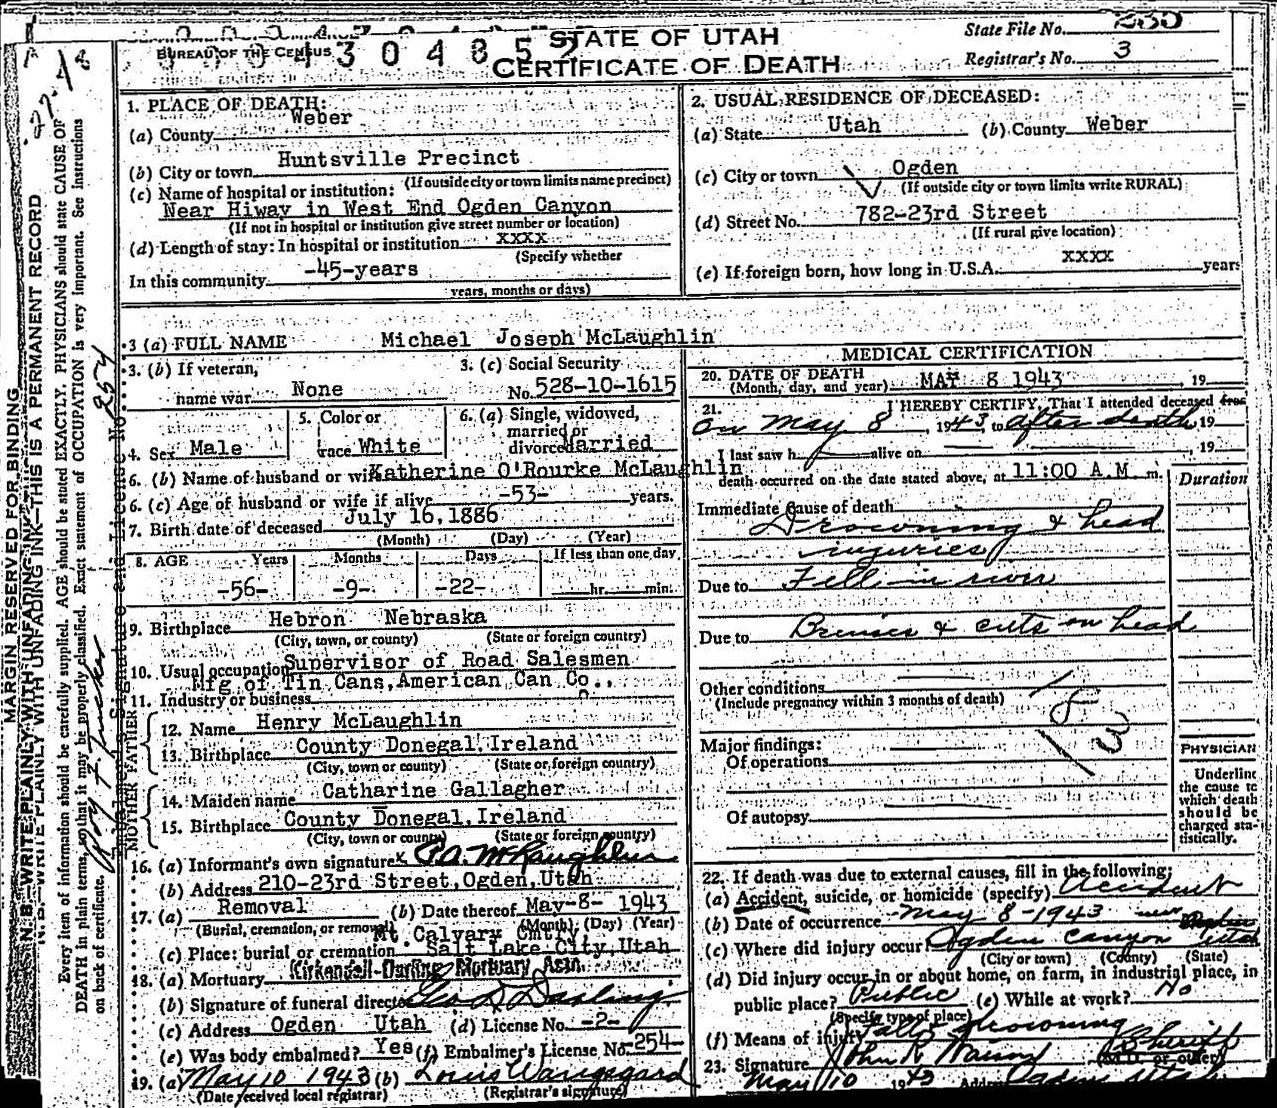 State File No. 235
BUREAU OF THE CENSUS
4304852
STATE OF UTAH
CERTIFICATE OF DEATH
Registrar's No. 3
MARGIN RESERVED FOR BINDING
N. B.—WRITE PLAINLY WITH UNFADING INK—THIS IS A PERMANENT RECORD
Every item of information should be carefully supplied. AGE should be stated EXACTLY. PHYSICIANS should state CAUSE OF
DEATH in plain terms, so that it may be properly classified. Exact statement of OCCUPATION is very important. See instructions
on back of certificate.
1. PLACE OF DEATH:
(a) County Weber
(b) City or town Huntsville Precinct
(If outside city or town limits name precinct)
(c) Name of hospital or institution:
Near Hiway in West End Ogden Canyon
(If not in hospital or institution give street number or location)
(d) Length of stay: In hospital or institution xxxx
(Specify whether
In this community -45-years
years, months or days)
2. USUAL RESIDENCE OF DECEASED:
(a) State Utah (b) County Weber
(c) City or town Ogden
(If outside city or town limits write RURAL)
(d) Street No. 782-23rd Street
(If rural give location)
(e) If foreign born, how long in U.S.A. xxxx years
3 (a) FULL NAME Michael Joseph McLaughlin
3. (b) If veteran,
name war None
3. (c) Social Security
No. 528-10-1615
4. Sex Male
5. Color or
race White
6. (a) Single, widowed,
married or
divorced Married
6. (b) Name of husband or wife Katherine O'Rourke McLaughlin
6. (c) Age of husband or wife if alive -53- years.
7. Birth date of deceased July 16,1886
(Month) (Day) (Year)
8. AGE Years Months Days If less than one day
-56- -9- -22- hr. min.
9. Birthplace Hebron Nebraska
(City, town, or county) (State or foreign country)
10. Usual occupation Supervisor of Road Salesmen
Mfg of Tin Cans,American Can Co.,
11. Industry or business
FATHER
12. Name Henry McLaughlin
13. Birthplace County Donegal,Ireland
(City, town or county) (State or foreign country)
MOTHER
14. Maiden name Catharine Gallagher
15. Birthplace County Donegal,Ireland
(City, town or county) (State or foreign country)
16. (a) Informant's own signature x McLaughlin
(b) Address 210-23rd Street,Ogden,Utah
17. (a) Removal (b) Date thereof May-8- 1943
(Burial, cremation, or removal) (Month) (Day) (Year)
Mt. Calvary Cmtry.
(c) Place: burial or cremation Salt Lake City,Utah
18. (a) Mortuary Kirkendall-Darling Mortuary Assn.
(b) Signature of funeral director Geo D Darling
(c) Address Ogden Utah (d) License No. -2-
(e) Was body embalmed? Yes (f) Embalmer's License No. -254-
19. (a) May 10 1943 (b) Louis
(Date received local registrar) (Registrar's signature)
MEDICAL CERTIFICATION
20. DATE OF DEATH
(Month, day, and year) MAY 8 1943, 19
21. I HEREBY CERTIFY, That I attended deceased from
On May 8, 1943 to after death 19
I last saw h alive on , 19
death occurred on the date stated above, at 11:00 A.M. m.
Duration
Immediate cause of death
Drowning & head
injuries
Due to Fell in river
Due to Bruises & cuts on head
Other conditions
(Include pregnancy within 3 months of death)
183
Major findings:
Of operations
Of autopsy
PHYSICIAN
Underline
the cause to
which death
should be
charged sta-
tistically.
22. If death was due to external causes, fill in the following:
(a) Accident, suicide, or homicide (specify) Accident
(b) Date of occurrence May 8-1943
(c) Where did injury occur Ogden Canyon Utah
(City or town) (County) (State)
(d) Did injury occur in or about home, on farm, in industrial place, in
public place? Public (e) While at work? No
(Specify type of place)
(f) Means of injury Fall & drowning
23. Signature John R Sheriff
(M.D. or other)
May 10 1943 Address Ogden Utah